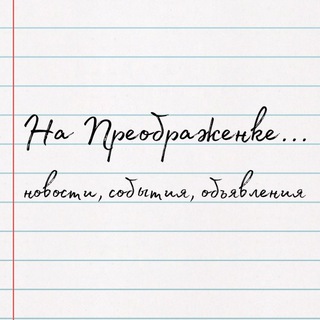 На Преображенке...
новости, события, объявления